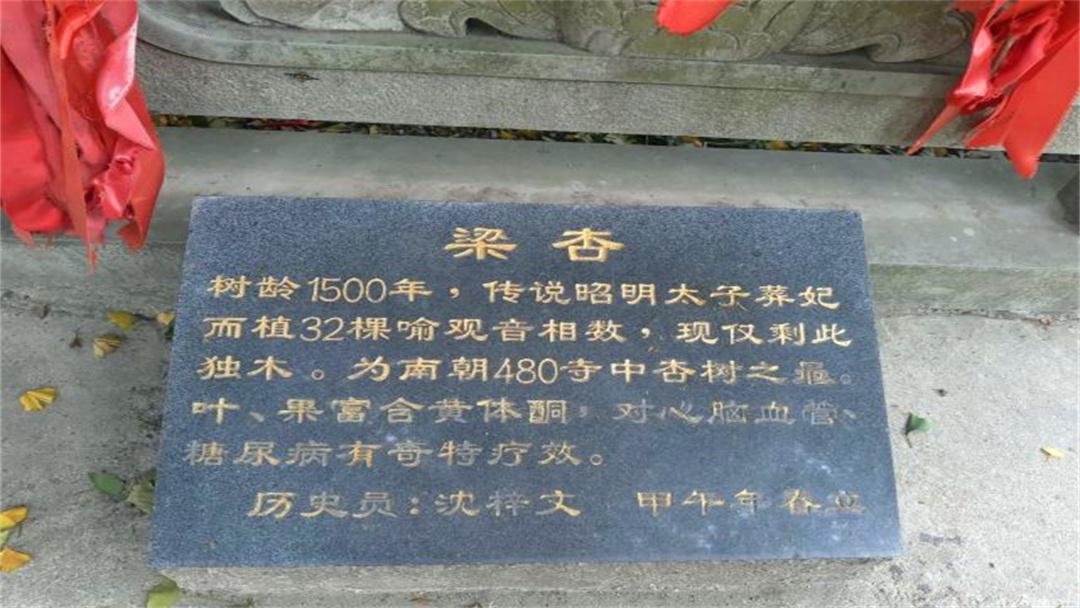 梁杏
树龄1500年，传说昭明太子葬妃
而植32棵喻观音相数，现仅剩此
独木。为南朝480寺中杏树之最。
叶、果富含黄体酮，对心脑血管、
糖尿病有奇特疗效。
历史员：沈梓文 甲午年春立